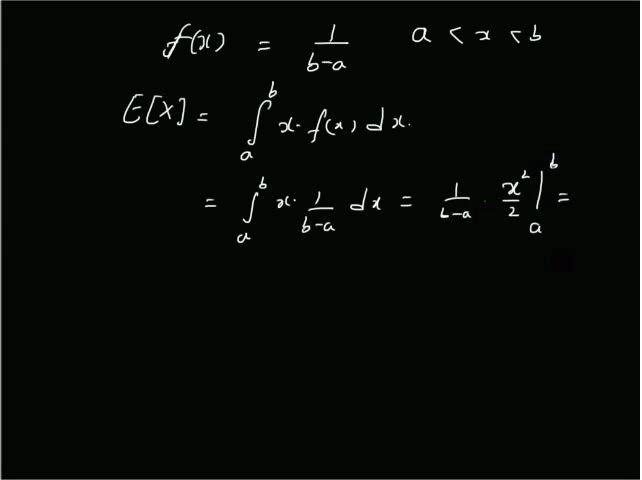 f(x) = 1/(b-a) a < x < b
E[X] = ∫_a^b x · f(x) dx.
= ∫_a^b x · 1/(b-a) dx = 1/(b-a) · x²/2 |_a^b =